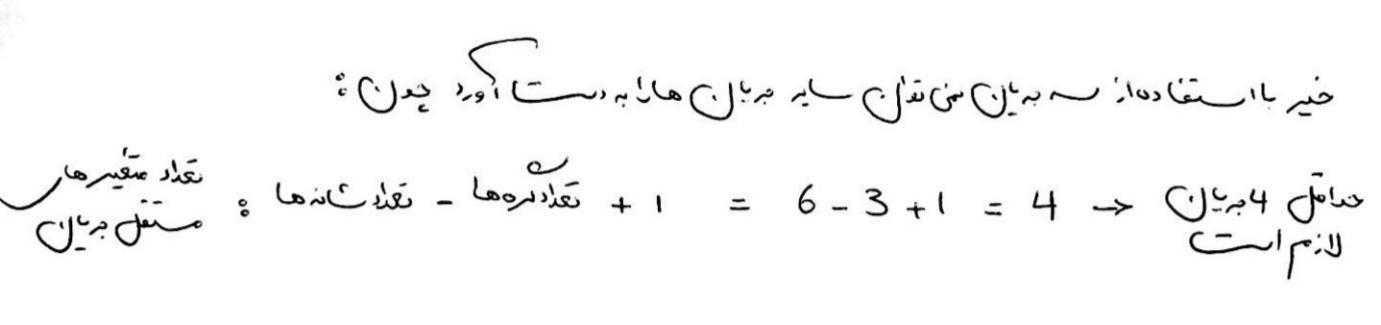 خیر با استفاده از سه جریان نمی توان سایر جریان ها را به دست آورد چون :
تعداد متغیرهای مستقل جریان : تعداد شاخه ها - تعداد گره ها + 1 = 6 - 3 + 1 = 4 → حداقل 4 جریان لازم است